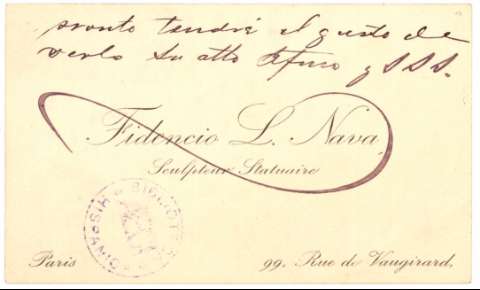 pronto tendré el gusto de
verlo Su atto afmo y SSS.
Fidencio L. Nava
Sculpteur Statuaire
BIBLIOT
Paris
99. Rue de Vaugirard.